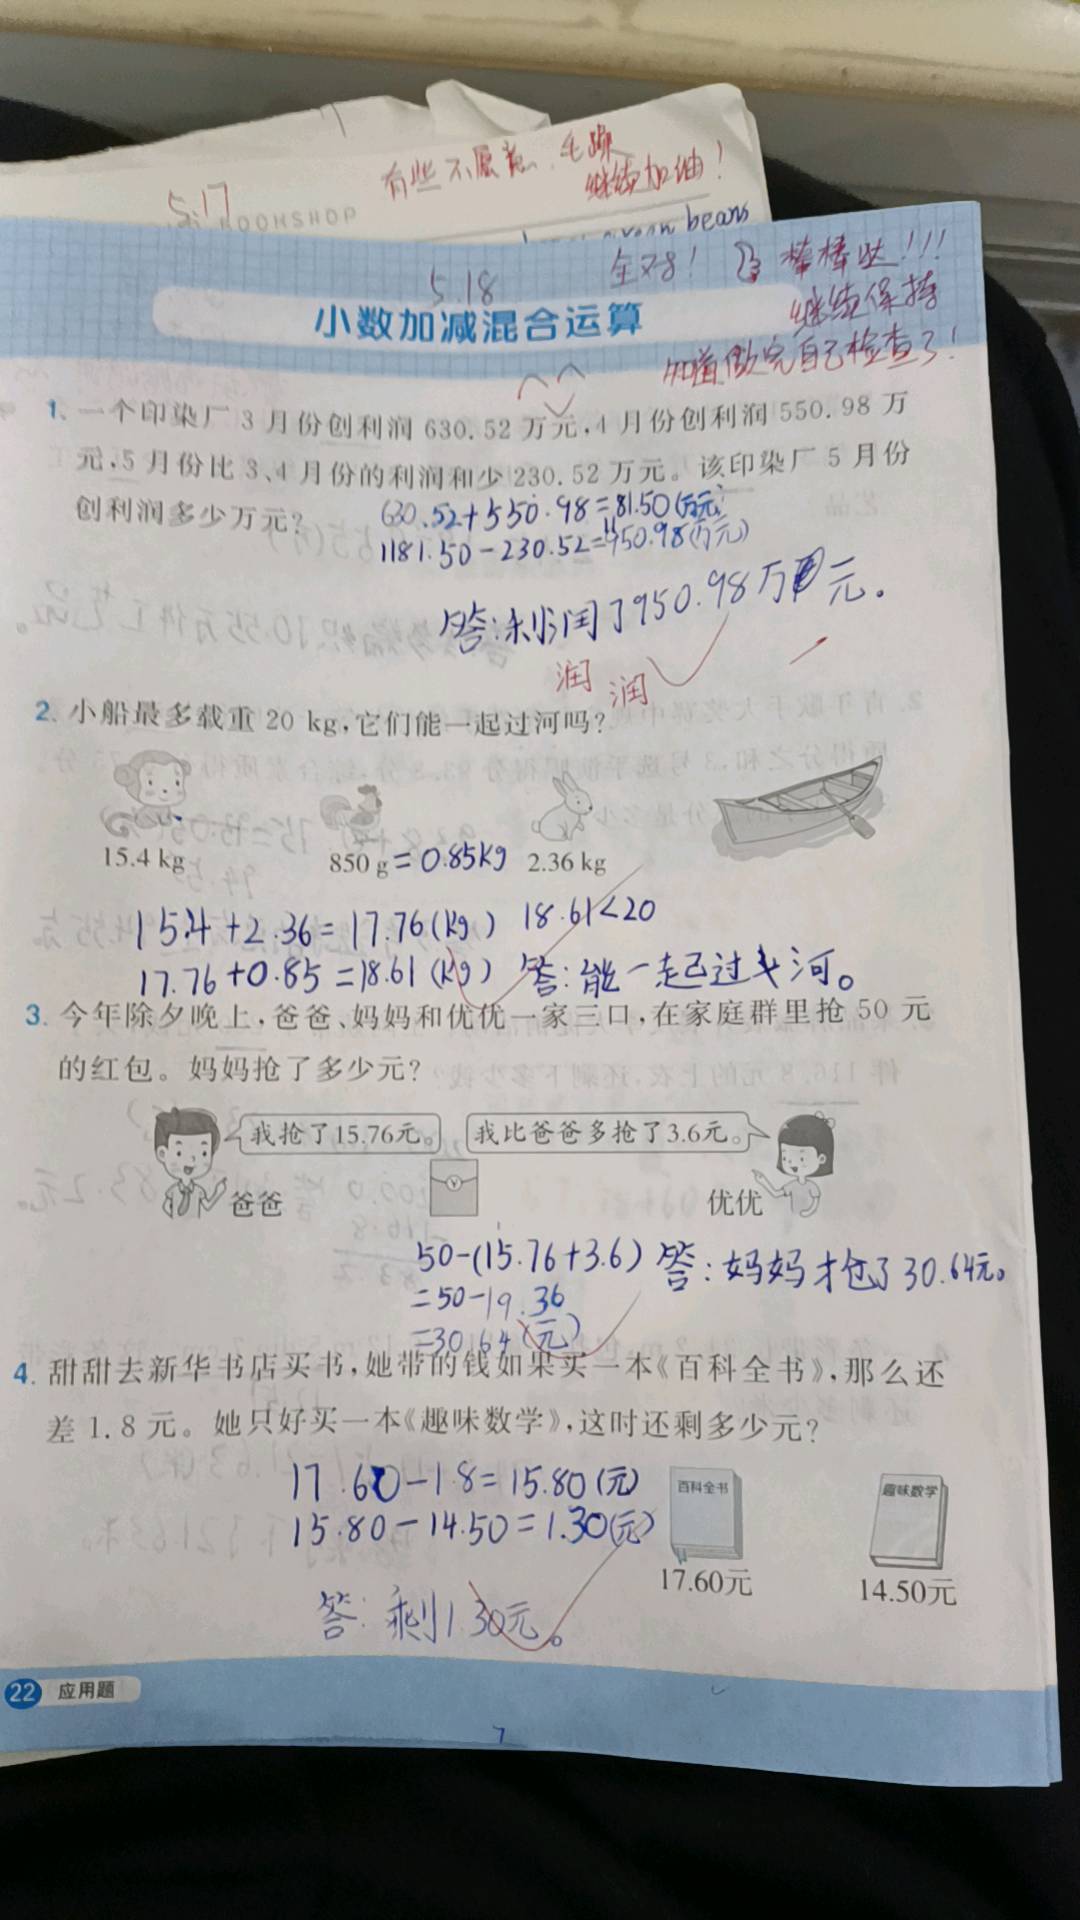 有些不愿意,
继续加油!
5.17
BOOKSHOP
green beans
全对! 棒棒哒!!!
5.18
继续保持
小数加减混合运算
知道做完自己检查了!
1. 一个印染厂 3 月份创利润 630.52 万元,4 月份创利润 550.98 万
元,5 月份比 3、4 月份的利润和少 230.52 万元。该印染厂 5 月份
创利润多少万元?
630.52+550.98=81.50(万元)
1181.50-230.52=950.98(万元)
答:利润了950.98万元。
润 润
2. 小船最多载重 20 kg,它们能一起过河吗?
15.4 kg
850 g=0.85kg
2.36 kg
15.4+2.36=17.76(kg) 18.61<20
17.76+0.85=18.61(kg) 答:能一起过河。
3. 今年除夕晚上,爸爸、妈妈和优优一家三口,在家庭群里抢 50 元
的红包。妈妈抢了多少元?
我抢了15.76元。
我比爸爸多抢了3.6元。
爸爸
优优
50-(15.76+3.6) 答:妈妈抢了30.64元。
=50-19.36
=30.64(元)
4. 甜甜去新华书店买书,她带的钱如果买一本《百科全书》,那么还
差 1.8 元。她只好买一本《趣味数学》,这时还剩多少元?
17.60-1.8=15.80(元)
15.80-14.50=1.30(元)
百科全书
趣味数学
17.60元
14.50元
答:剩1.30元。
22 应用题
7